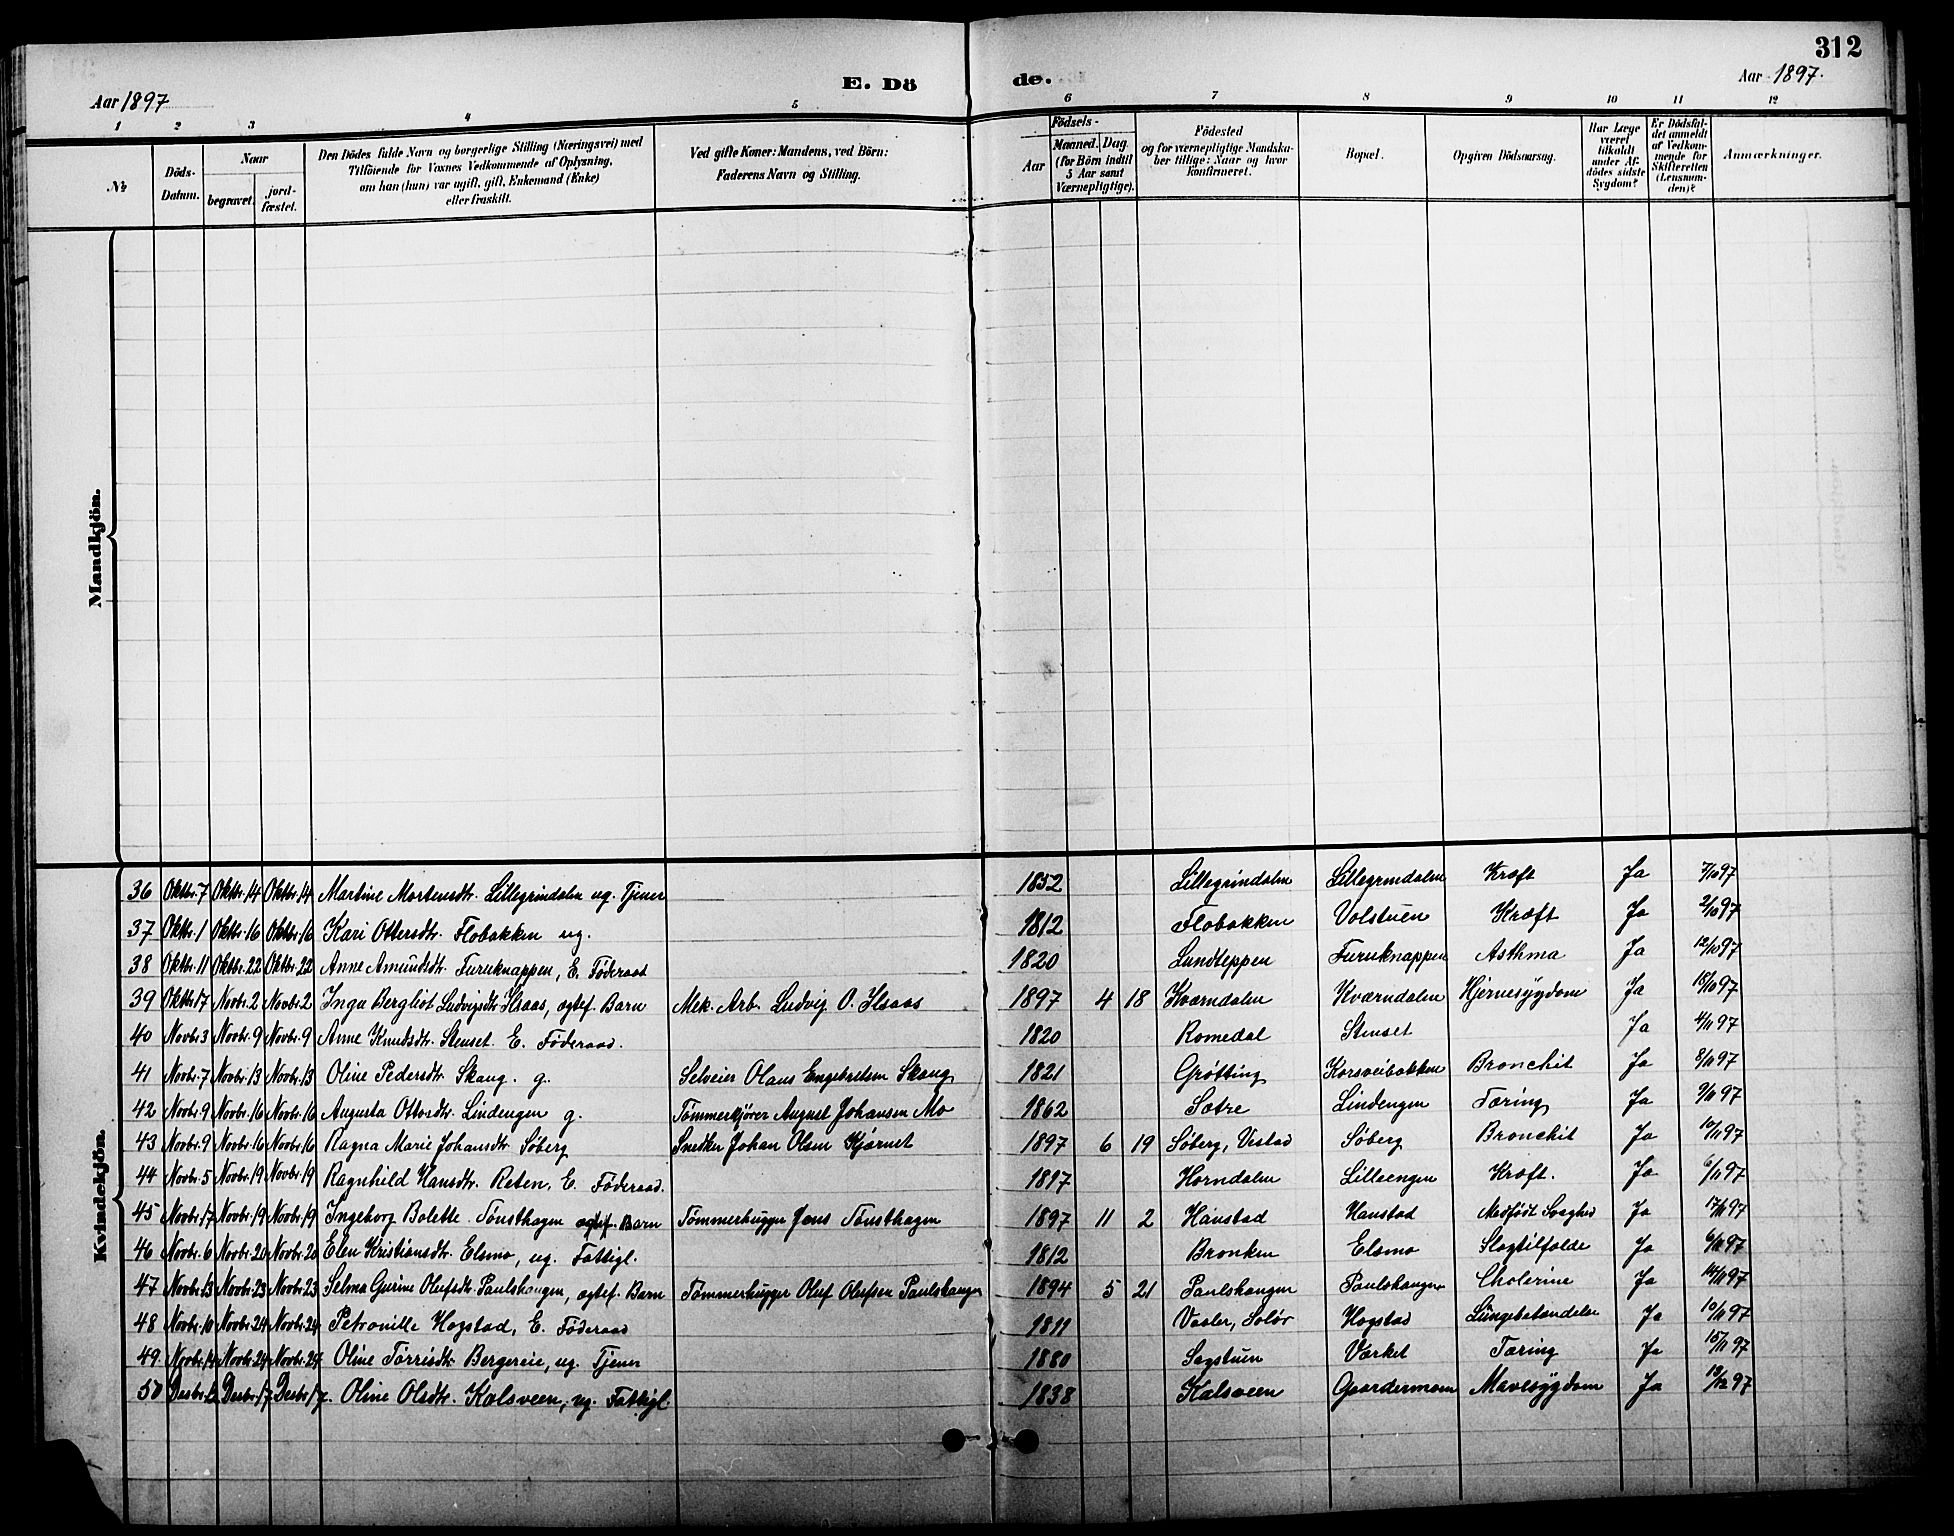 312
E. Döde.
Aar 1897
Aar 1897.
1 2 3 4 5 6 7 8 9 10 11 12
№
Döds-Datum.
Naar
begravet.
jord-fæstet.
Den Dödes fulde Navn og borgerlige Stilling (Næringsvei) med
Tilföiende for Voxnes Vedkommende af Oplysning,
om han (hun) var ugift, gift, Enkemand (Enke)
eller fraskilt.
Ved gifte Koner: Mandens, ved Börn:
Faderens Navn og Stilling.
Födsels-
Aar
Maaned. Dag.
(for Börn indtil
5 Aar samt
Værnepligtige).
Födested
og for værnepligtige Mandska-
ber tillige: Naar og hvor
konfirmeret.
Bopæl.
Opgiven Dödsaarsag.
Har Læge
været
tilkaldt
under Af-
dödes sidste
Sygdom?
Er Dödsfal-
det anmeldt
af Vedkom-
mende for
Skifteretten
(Lensman-
den)?
Anmærkninger.
Mandkjön.
Kvindekjön.
36 Oktbr. 7 Oktbr. 14 Oktbr. 14 Martine Mortensdtr. Lillegrindalen ug. Tjener 1852 Lillegrindalen Lillegrindalen Kræft Ja 7/10 97
37 Oktbr. 1 Oktbr. 16 Oktbr. 16 Kari Ottersdtr. Flobakken ug. 1812 Flobakken Volstuen Kræft Ja 2/10 97
38 Oktbr. 11 Oktbr. 22 Oktbr. 22 Anne Amundsdtr. Furuknappen, E. Föderaad 1820 Lundteppen Furuknappen Asthma Ja 12/10 97
39 Oktbr. 17 Novbr. 2 Novbr. 2 Inga Bergliot Ludvigsdtr. Ilsaas, ægtef. Barn Mek. Arb. Ludvig O. Ilsaas 1897 4 18 Kværndalen Kværndalen Hjernesygdom Ja 18/10 97
40 Novbr. 3 Novbr. 9 Novbr. 9 Anne Knudsdtr. Stenset E. Föderaad. 1820 Romedal Stenset Ja 4/11 97
41 Novbr. 7 Novbr. 13 Novbr. 13 Oline Pedersdtr. Skaug. g. Selveier Olaus Engebretsen Skaug 1821 Grötting Korsveibakken Bronchit Ja 8/11 97
42 Novbr. 9 Novbr. 16 Novbr. 16 Augusta Ottosdtr. Lindengen g. Tömmerkjörer August Johansen Mo 1862 Sætre Lindengen Tæring Ja 9/11 97
43 Novbr. 9 Novbr. 16 Novbr. 16 Ragna Marie Johansdtr. Söberg Snedker Johan Olsen Kjernet 1897 6 19 Söberg, Vestad Söberg Bronchit Ja 10/11 97
44 Novbr. 5 Novbr. 19 Novbr. 19 Ragnhild Hansdtr. Reten, E. Föderaad. 1817 Horndalen Lilleengen Kræft. Ja 6/11 97
45 Novbr. 17 Novbr. 19 Novbr. 19 Ingeborg Bolette Tönsthagen ægtef. Barn Tömmerhugger Jens Tönsthagen 1897 11 2 Hanstad Hanstad Medfödt Svaghed Ja 17/11 97
46 Novbr. 6 Novbr. 20 Novbr. 20 Elen Kristiansdtr. Elsmo, ug. Fattigl. 1812 Bronken Elsmo Slagtilfælde Ja 6/11 97
47 Novbr. 13 Novbr. 23 Novbr. 23 Selma Gurine Olufsdtr. Paulshaugen, ægtef. Barn Tömmerhugger Oluf Olufsen Paulshaugen 1894 5 21 Paulshaugen Paulshaugen Cholerine Ja 14/11 97
48 Novbr. 10 Novbr. 24 Novbr. 24 Petronille Hogstad, E. Föderaad 1811 Vaaler, Solör Hogstad Lungebetændelse Ja 10/11 97
49 Novbr. 14 Novbr. 24 Novbr. 24 Oline Törrisdtr. Bergereie, ug. Tjener 1880 Sagstuen Værket Tæring Ja 15/11 97
50 Decbr. Decbr. 17 Decbr. 17. Oline Olsdtr. Kalsveen, ug. Fattigl. 1838 Kalsveen Gaardermoen Mavesygdom Ja 13/12 97